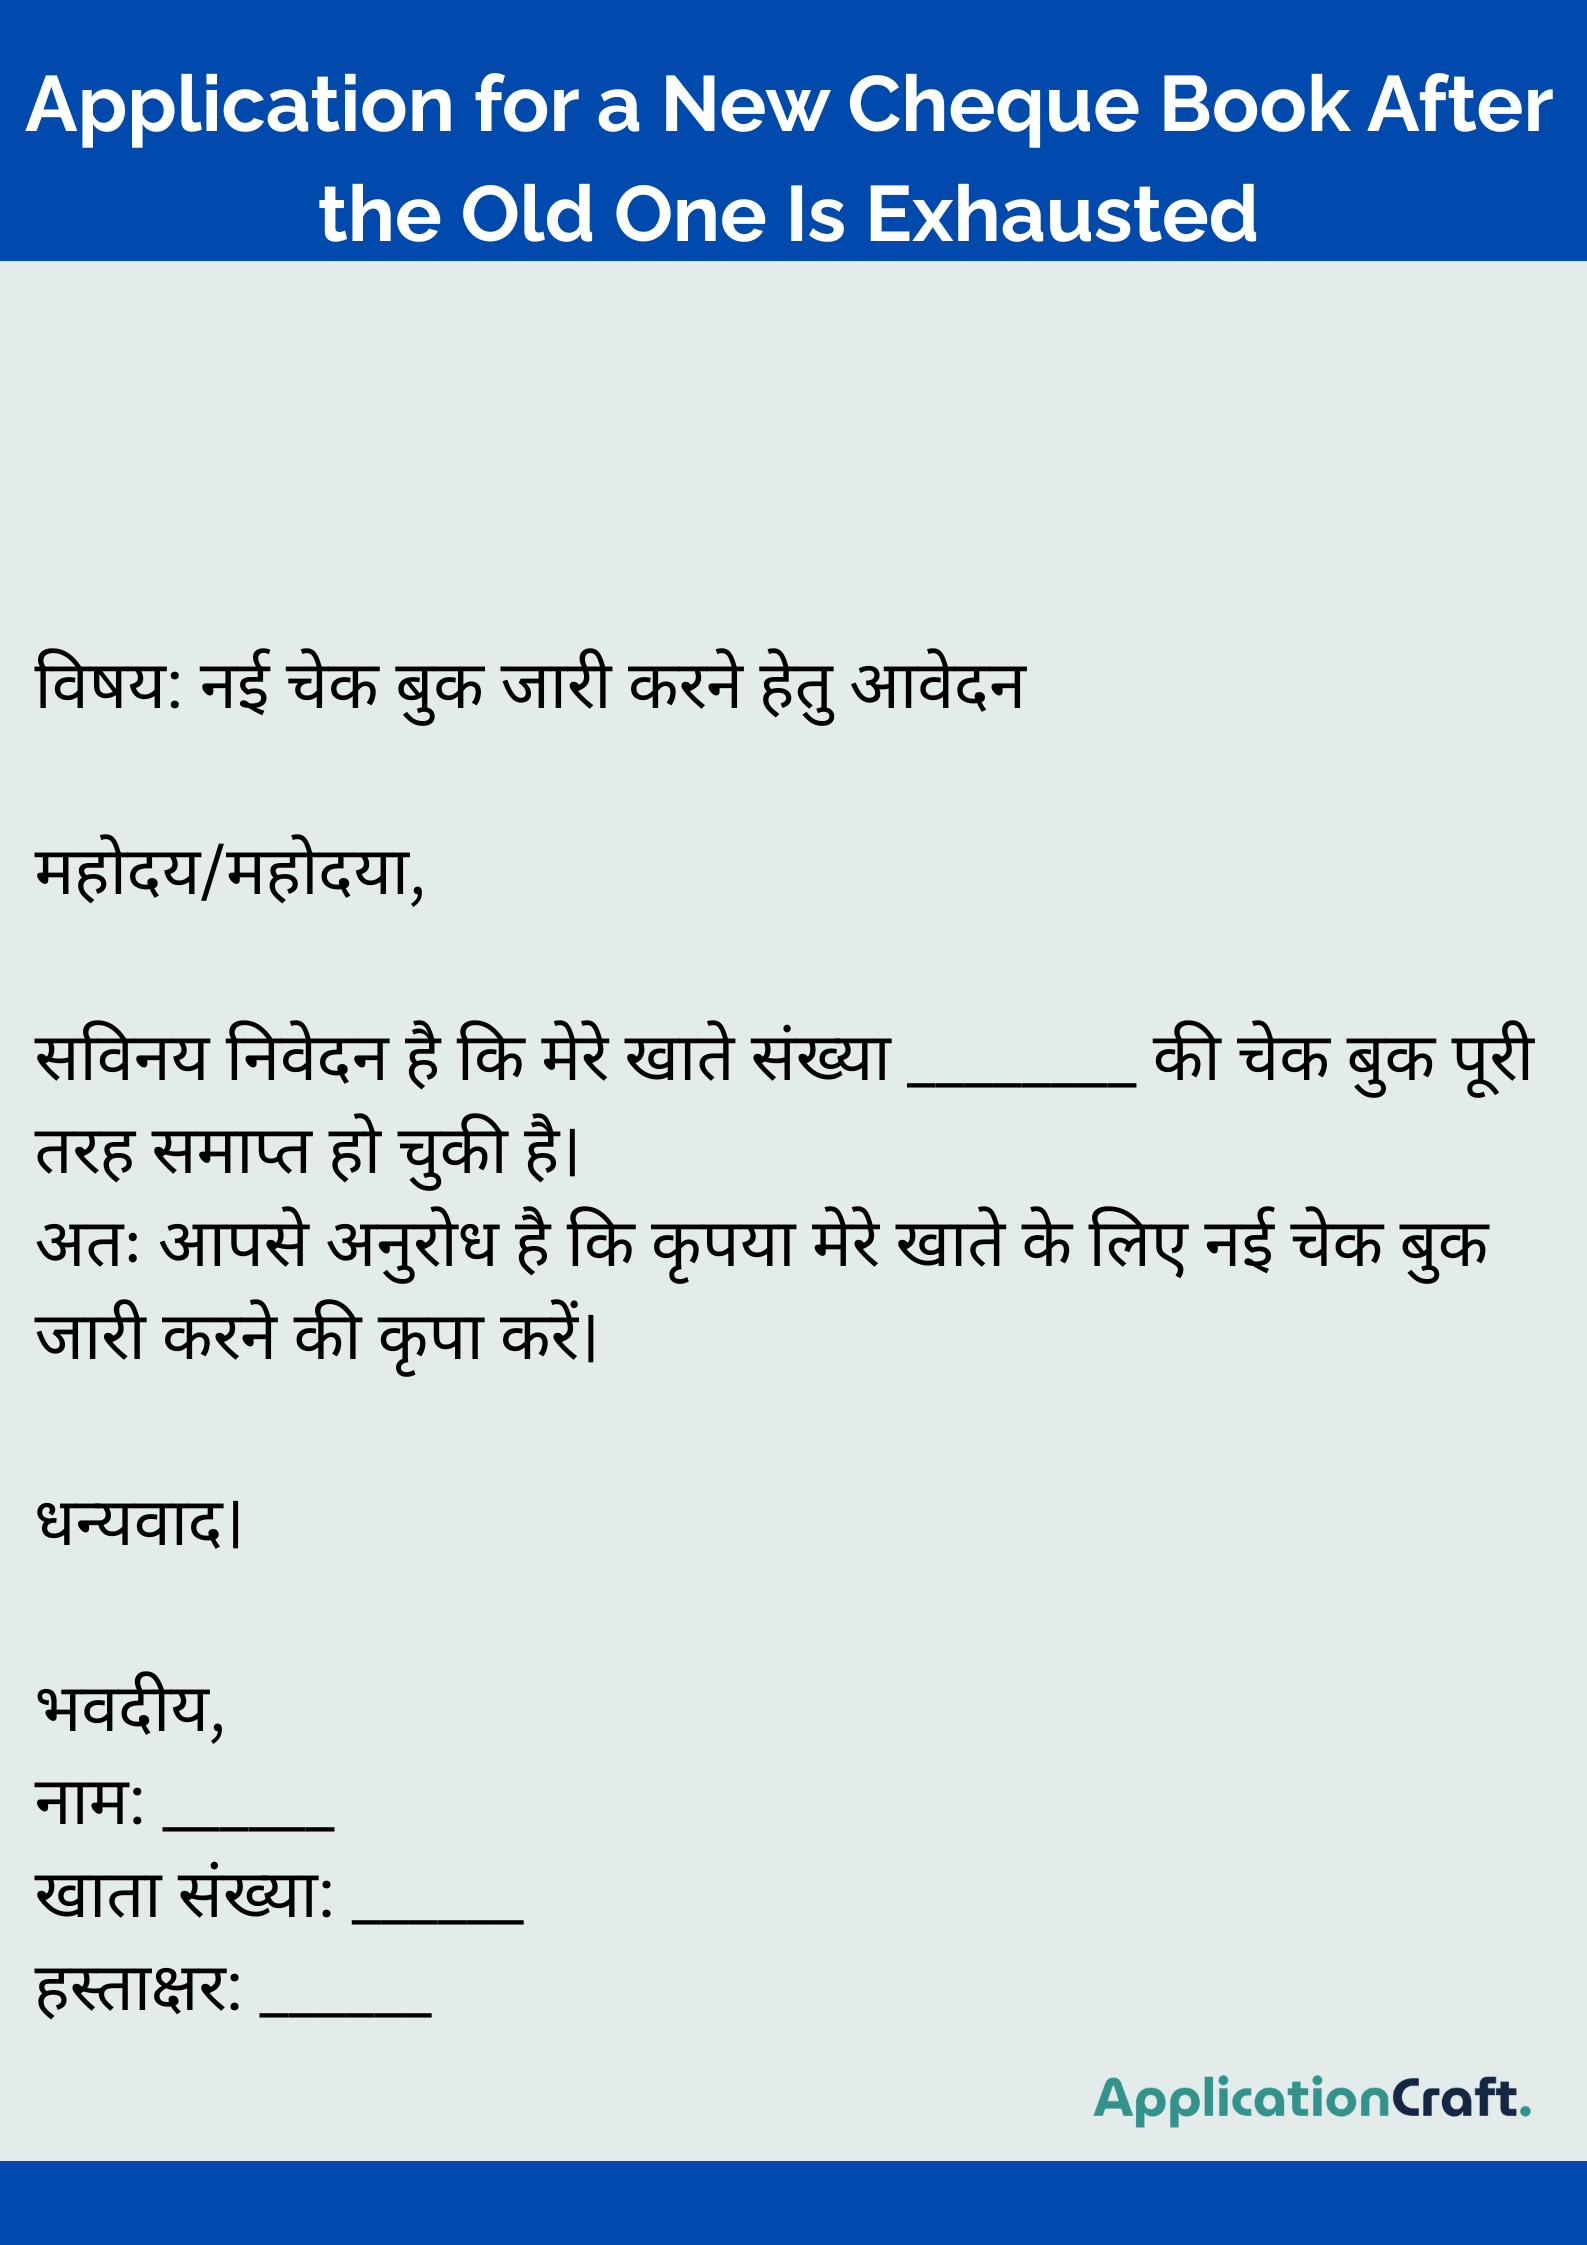 Application for a New Cheque Book After
the Old One Is Exhausted
विषय: नई चेक बुक जारी करने हेतु आवेदन
महोदय/महोदया,
सविनय निवेदन है कि मेरे खाते संख्या ________ की चेक बुक पूरी
तरह समाप्त हो चुकी है।
अतः आपसे अनुरोध है कि कृपया मेरे खाते के लिए नई चेक बुक
जारी करने की कृपा करें।
धन्यवाद।
भवदीय,
नाम: ______
खाता संख्या: ______
हस्ताक्षर: ______
ApplicationCraft.